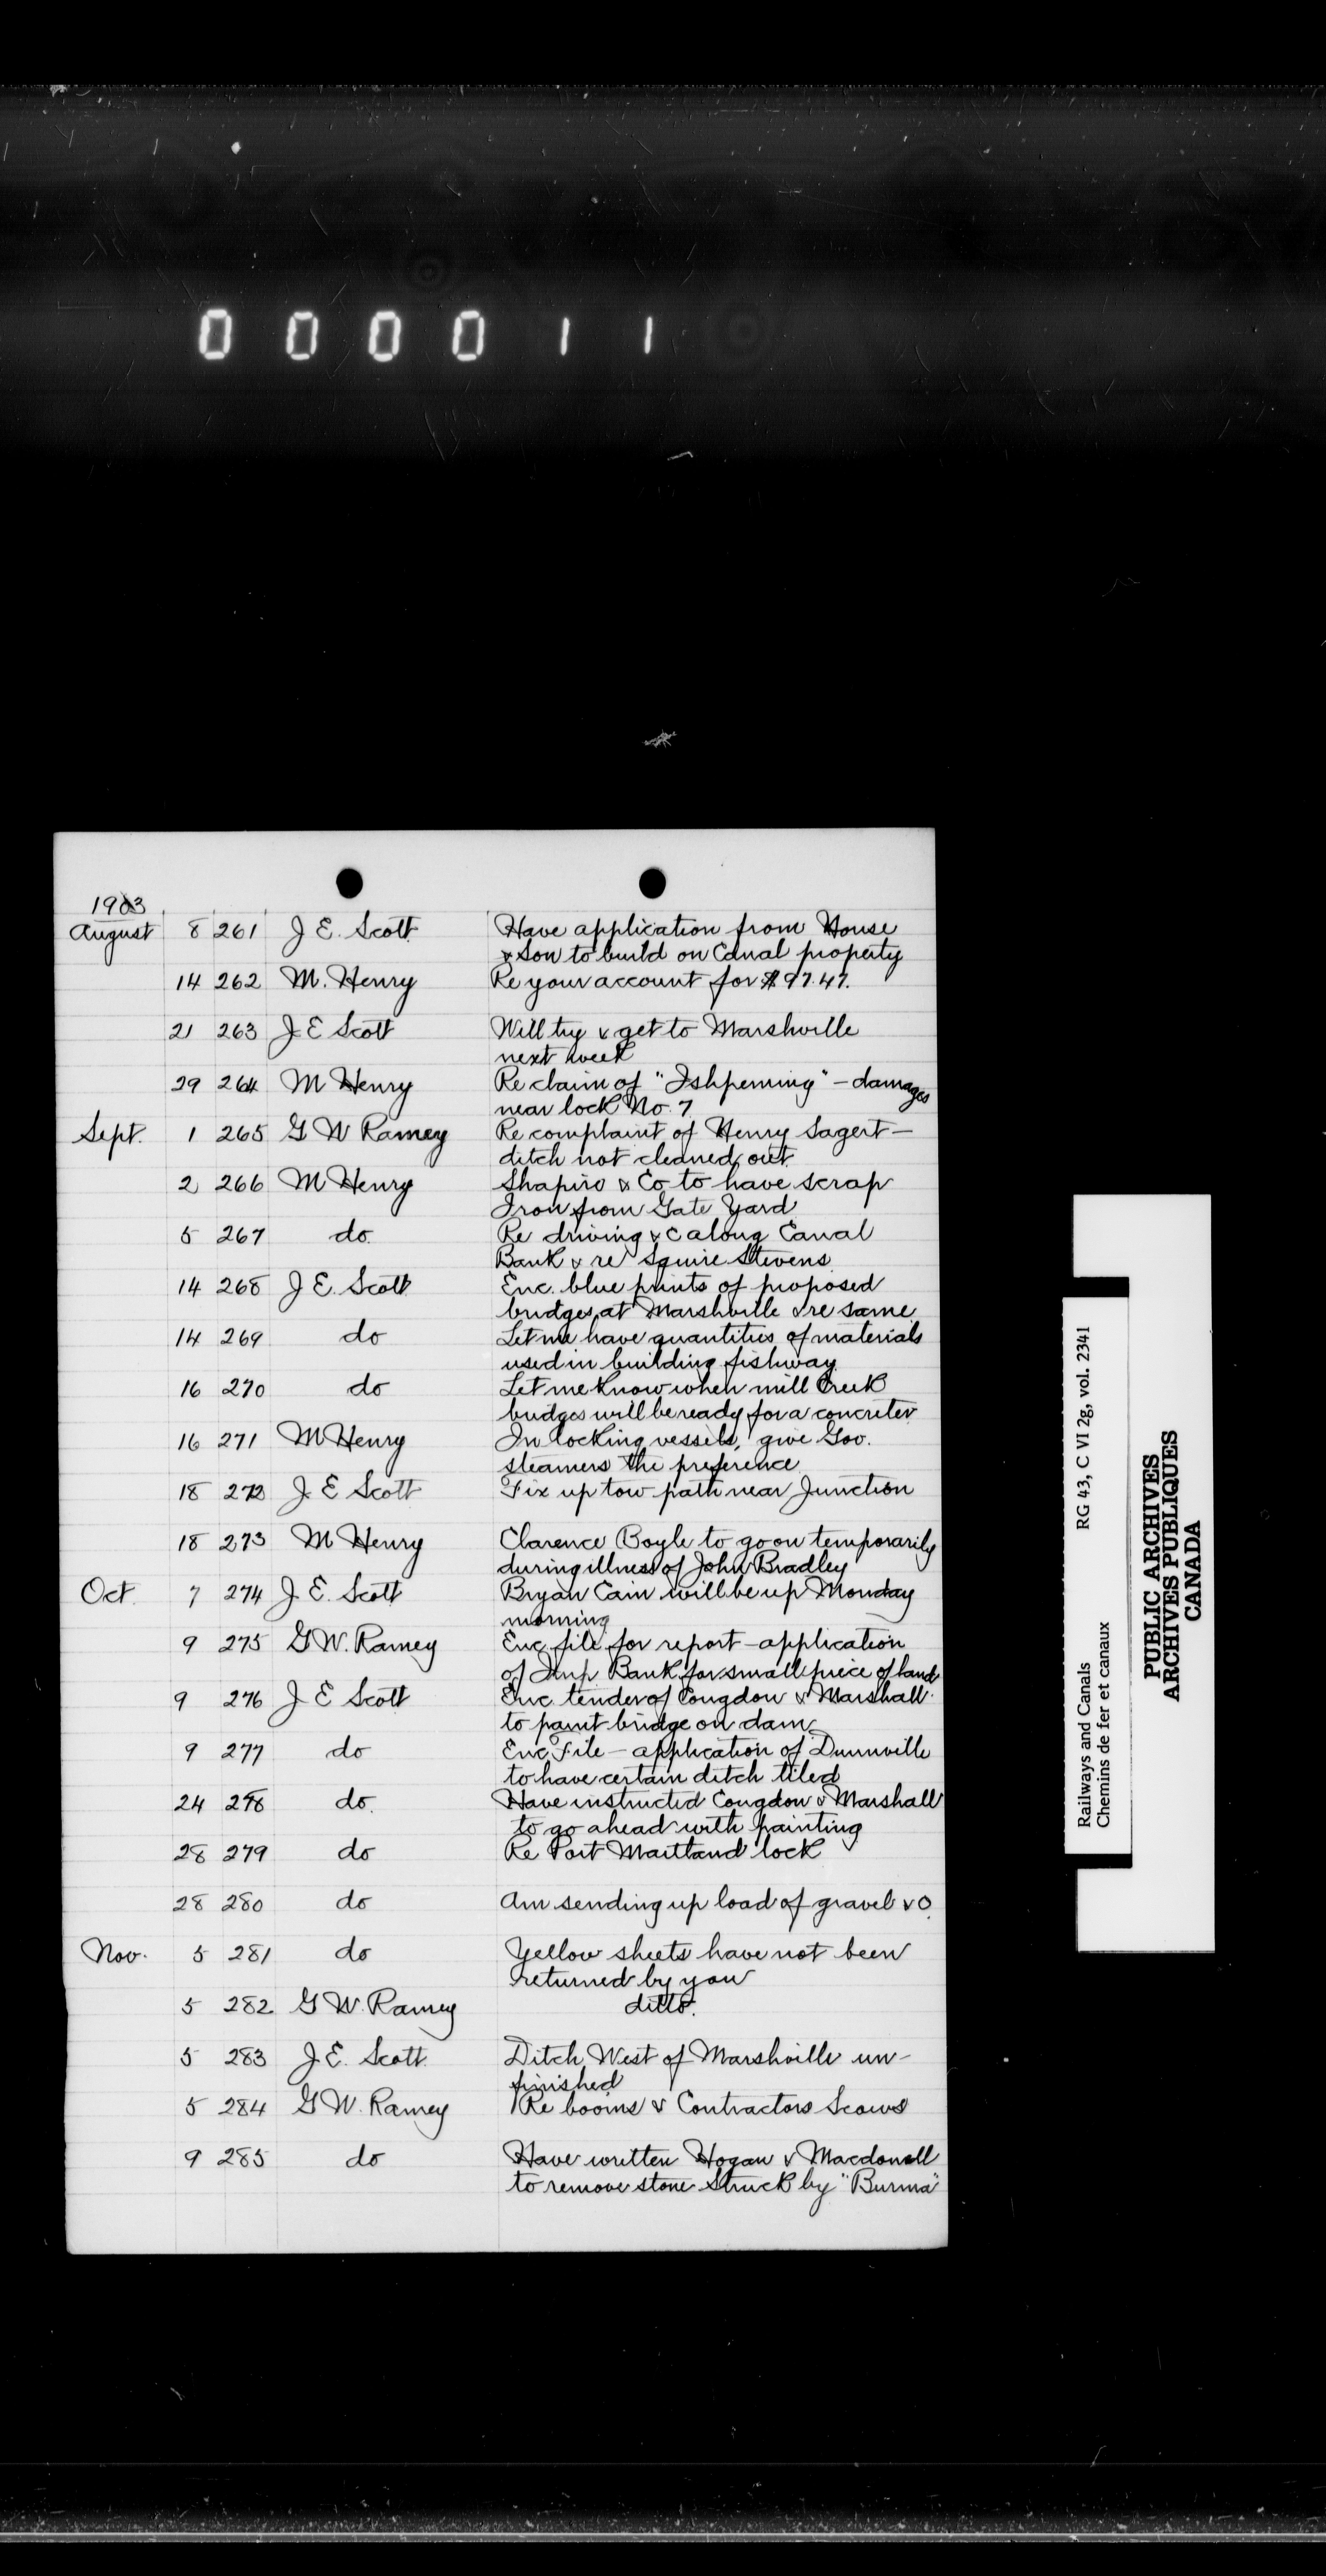 0 0 0 0 1 1
1903
August 8 261 J E. Scott Have application from House
& Son to build on Canal property
14 262 M. Henry Re your account for $97.47.
21 263 J E Scott Will try & get to Marshville
next week
29 264 M Henry Re claim of "Ishpeming" - damages
near lock No. 7
Sept. 1 265 G W Ramey Re complaint of Henry Sagert -
ditch not cleaned out.
2 266 M Henry Shapiro & Co to have scrap
Iron from Gate Yard
5 267 do. Re driving &c along Canal
Bank & re Squire Stevens.
14 268 J E. Scott Enc. blue prints of proposed
bridges at Marshville & re same
14 269 do Let me have quantities of materials
used in building fishway.
16 270 do Let me know when mill Creek
bridges will be ready for a concreter
16 271 M Henry In locking vessels, give Gov.
steamers the preference
18 272 J. E Scott Fix up tow path near Junction
18 273 M Henry Clarence Boyle to go on temporarily
during illness of John Bradley
Oct. 7 274 J E. Scott Bryan Cain will be up Monday
morning
9 275 G W. Ramey Enc. file for report - application
of Imp. Bank for small piece of land
9 276 J E Scott Enc. tender of Congdon & Marshall
to paint bridge on dam
9 277 do Enc. File - application of Dunnville
to have certain ditch tiled
24 278 do. Have instructed Congdon & Marshall
to go ahead with painting
28 279 do Re Port Maitland lock
28 280 do Am sending up load of gravel &c
Nov. 5 281 do Yellow sheets have not been
returned by you
5 282 G W. Ramey ditto.
5 283 J E. Scott. Ditch West of Marshville un-
finished
5 284 G W. Ramey Re booms & Contractors Scows
9 285 do Have written Hogan & Macdonell
to remove stone struck by "Burma"
Railways and Canals RG 43, C VI 2g, vol. 2341
Chemins de fer et canaux
PUBLIC ARCHIVES
ARCHIVES PUBLIQUES
CANADA